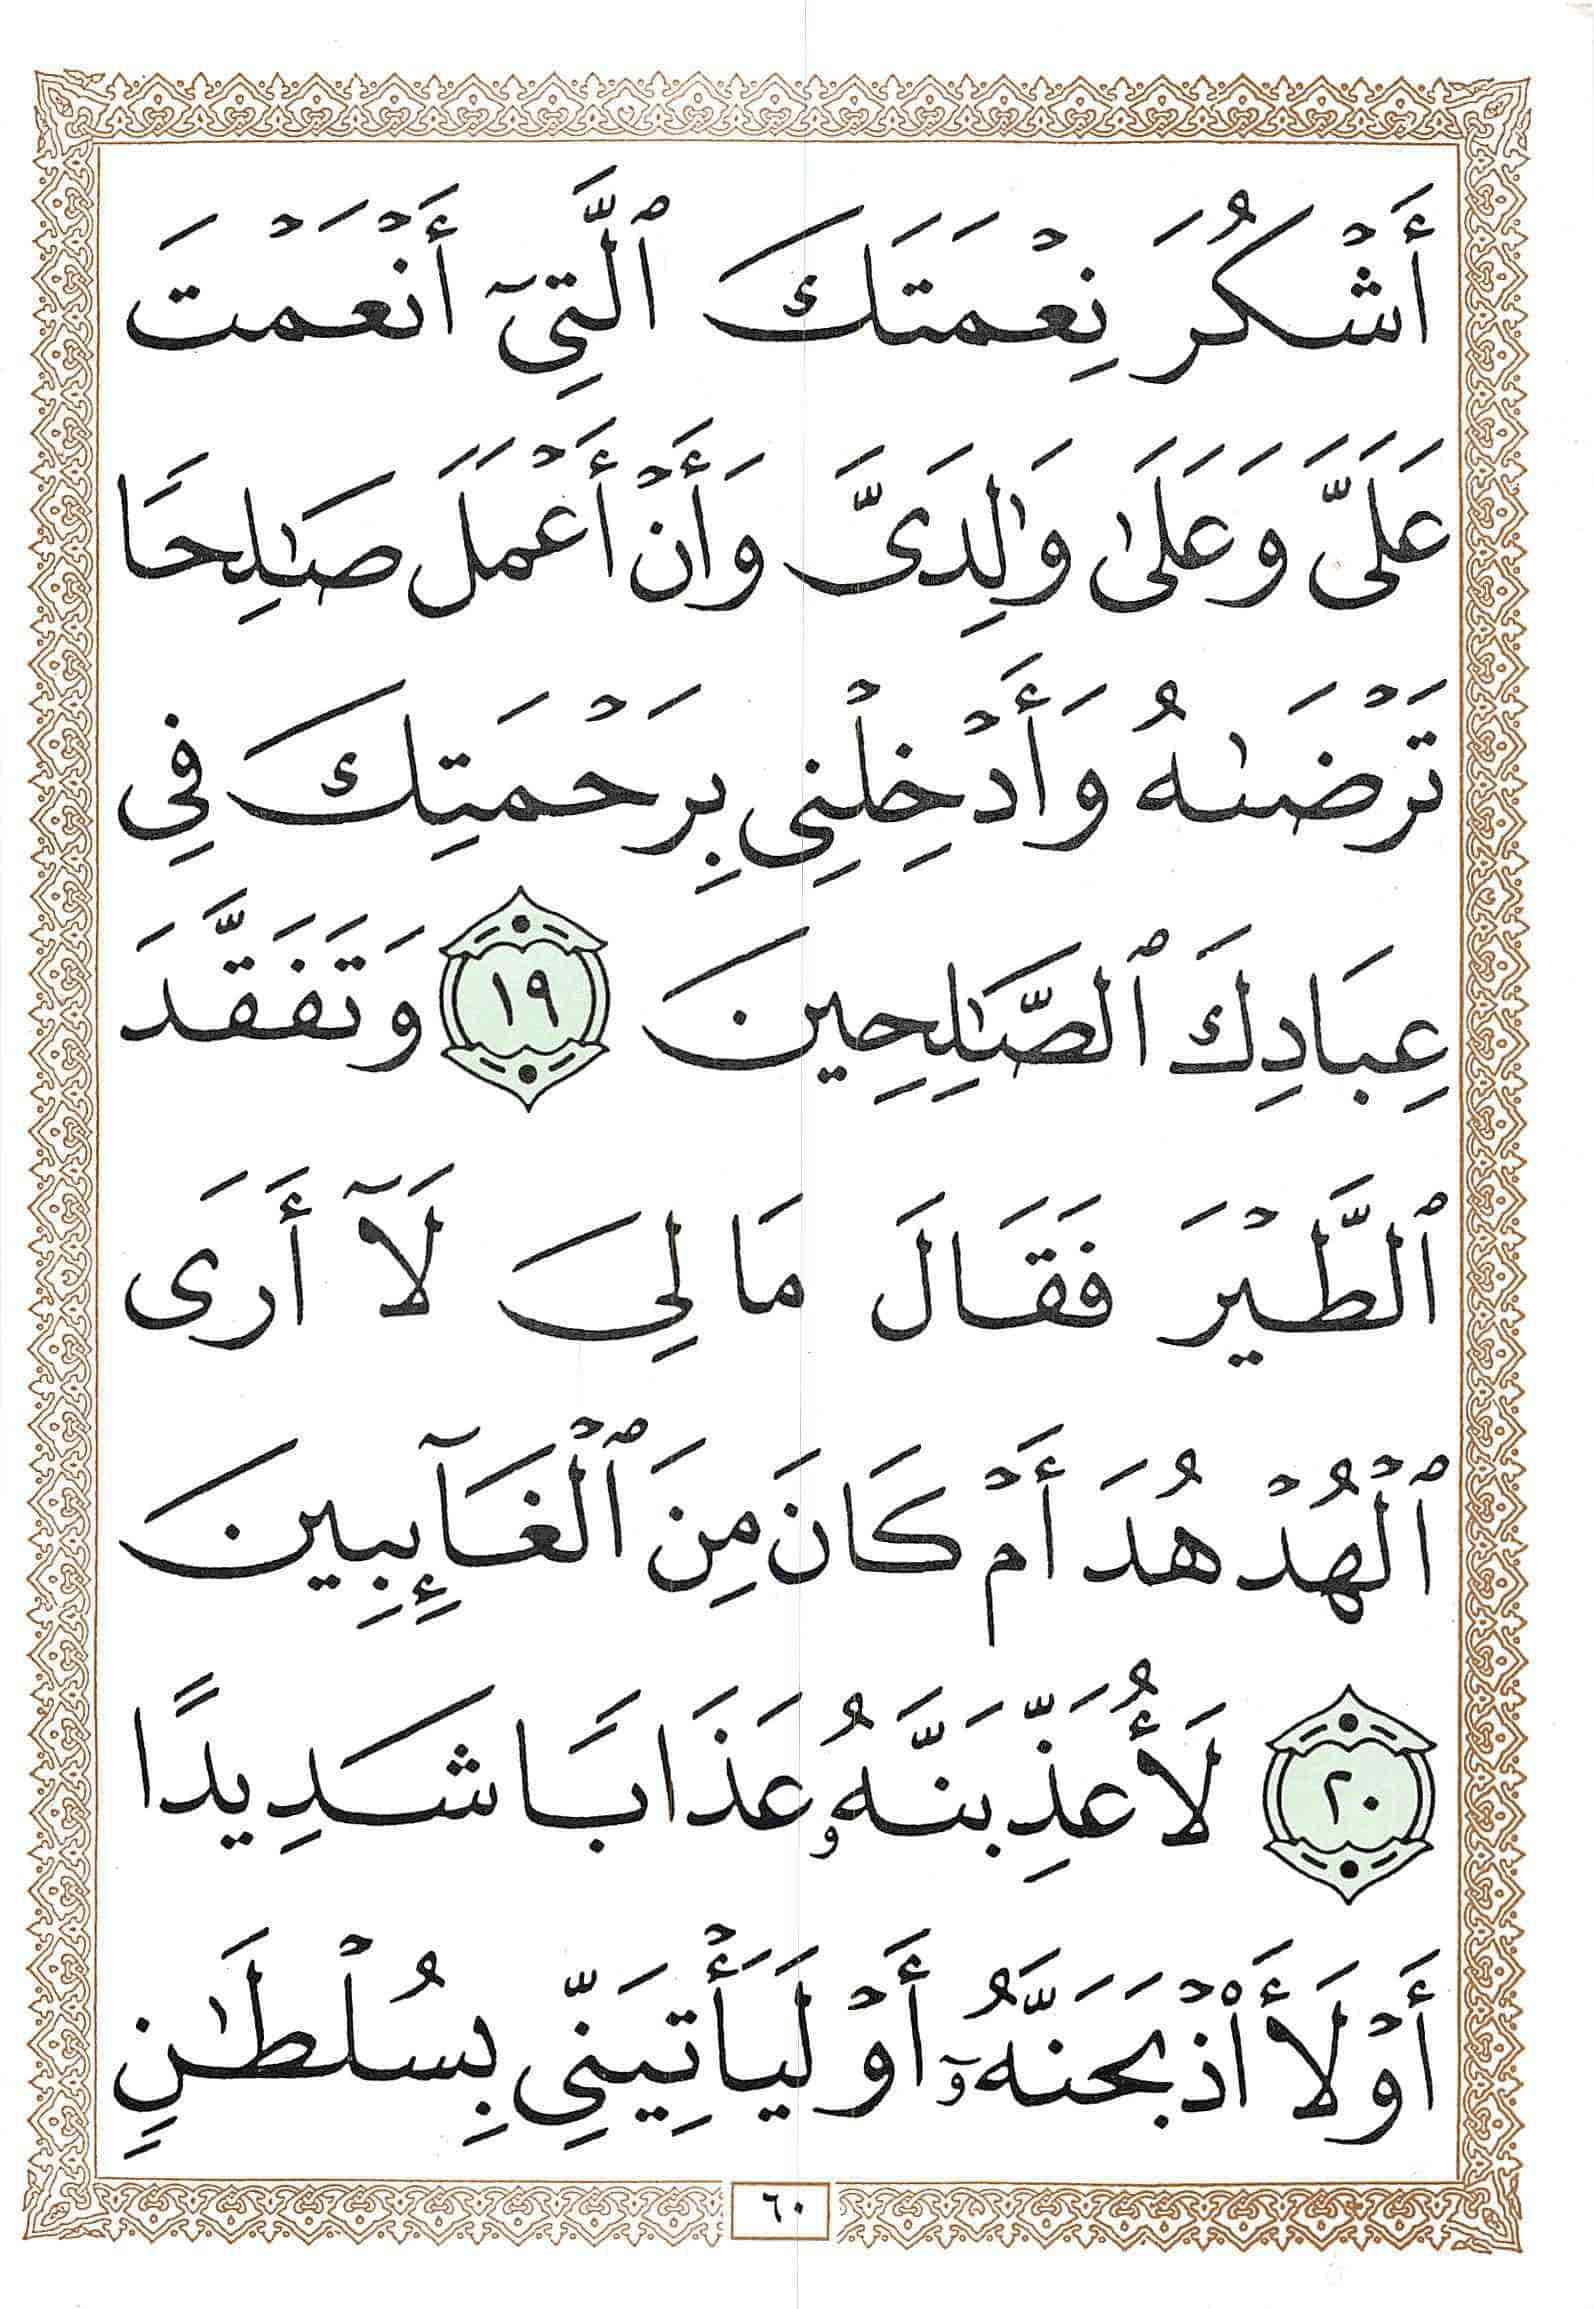 أَشۡكُرَ نِعۡمَتَكَ ٱلَّتِيٓ أَنۡعَمۡتَ
عَلَيَّ وَعَلَىٰ وَٰلِدَيَّ وَأَنۡ أَعۡمَلَ صَٰلِحًا
تَرۡضَىٰهُ وَأَدۡخِلۡنِي بِرَحۡمَتِكَ فِي
عِبَادِكَ ٱلصَّٰلِحِينَ ١٩ وَتَفَقَّدَ
ٱلطَّيۡرَ فَقَالَ مَا لِيَ لَآ أَرَى
ٱلۡهُدۡهُدَ أَمۡ كَانَ مِنَ ٱلۡغَآئِبِينَ
٢٠ لَأُعَذِّبَنَّهُۥ عَذَابًا شَدِيدًا
أَوۡ لَأَاْذۡبَحَنَّهُۥٓ أَوۡ لَيَأۡتِيَنِّي بِسُلۡطَٰنٍ
٦٠